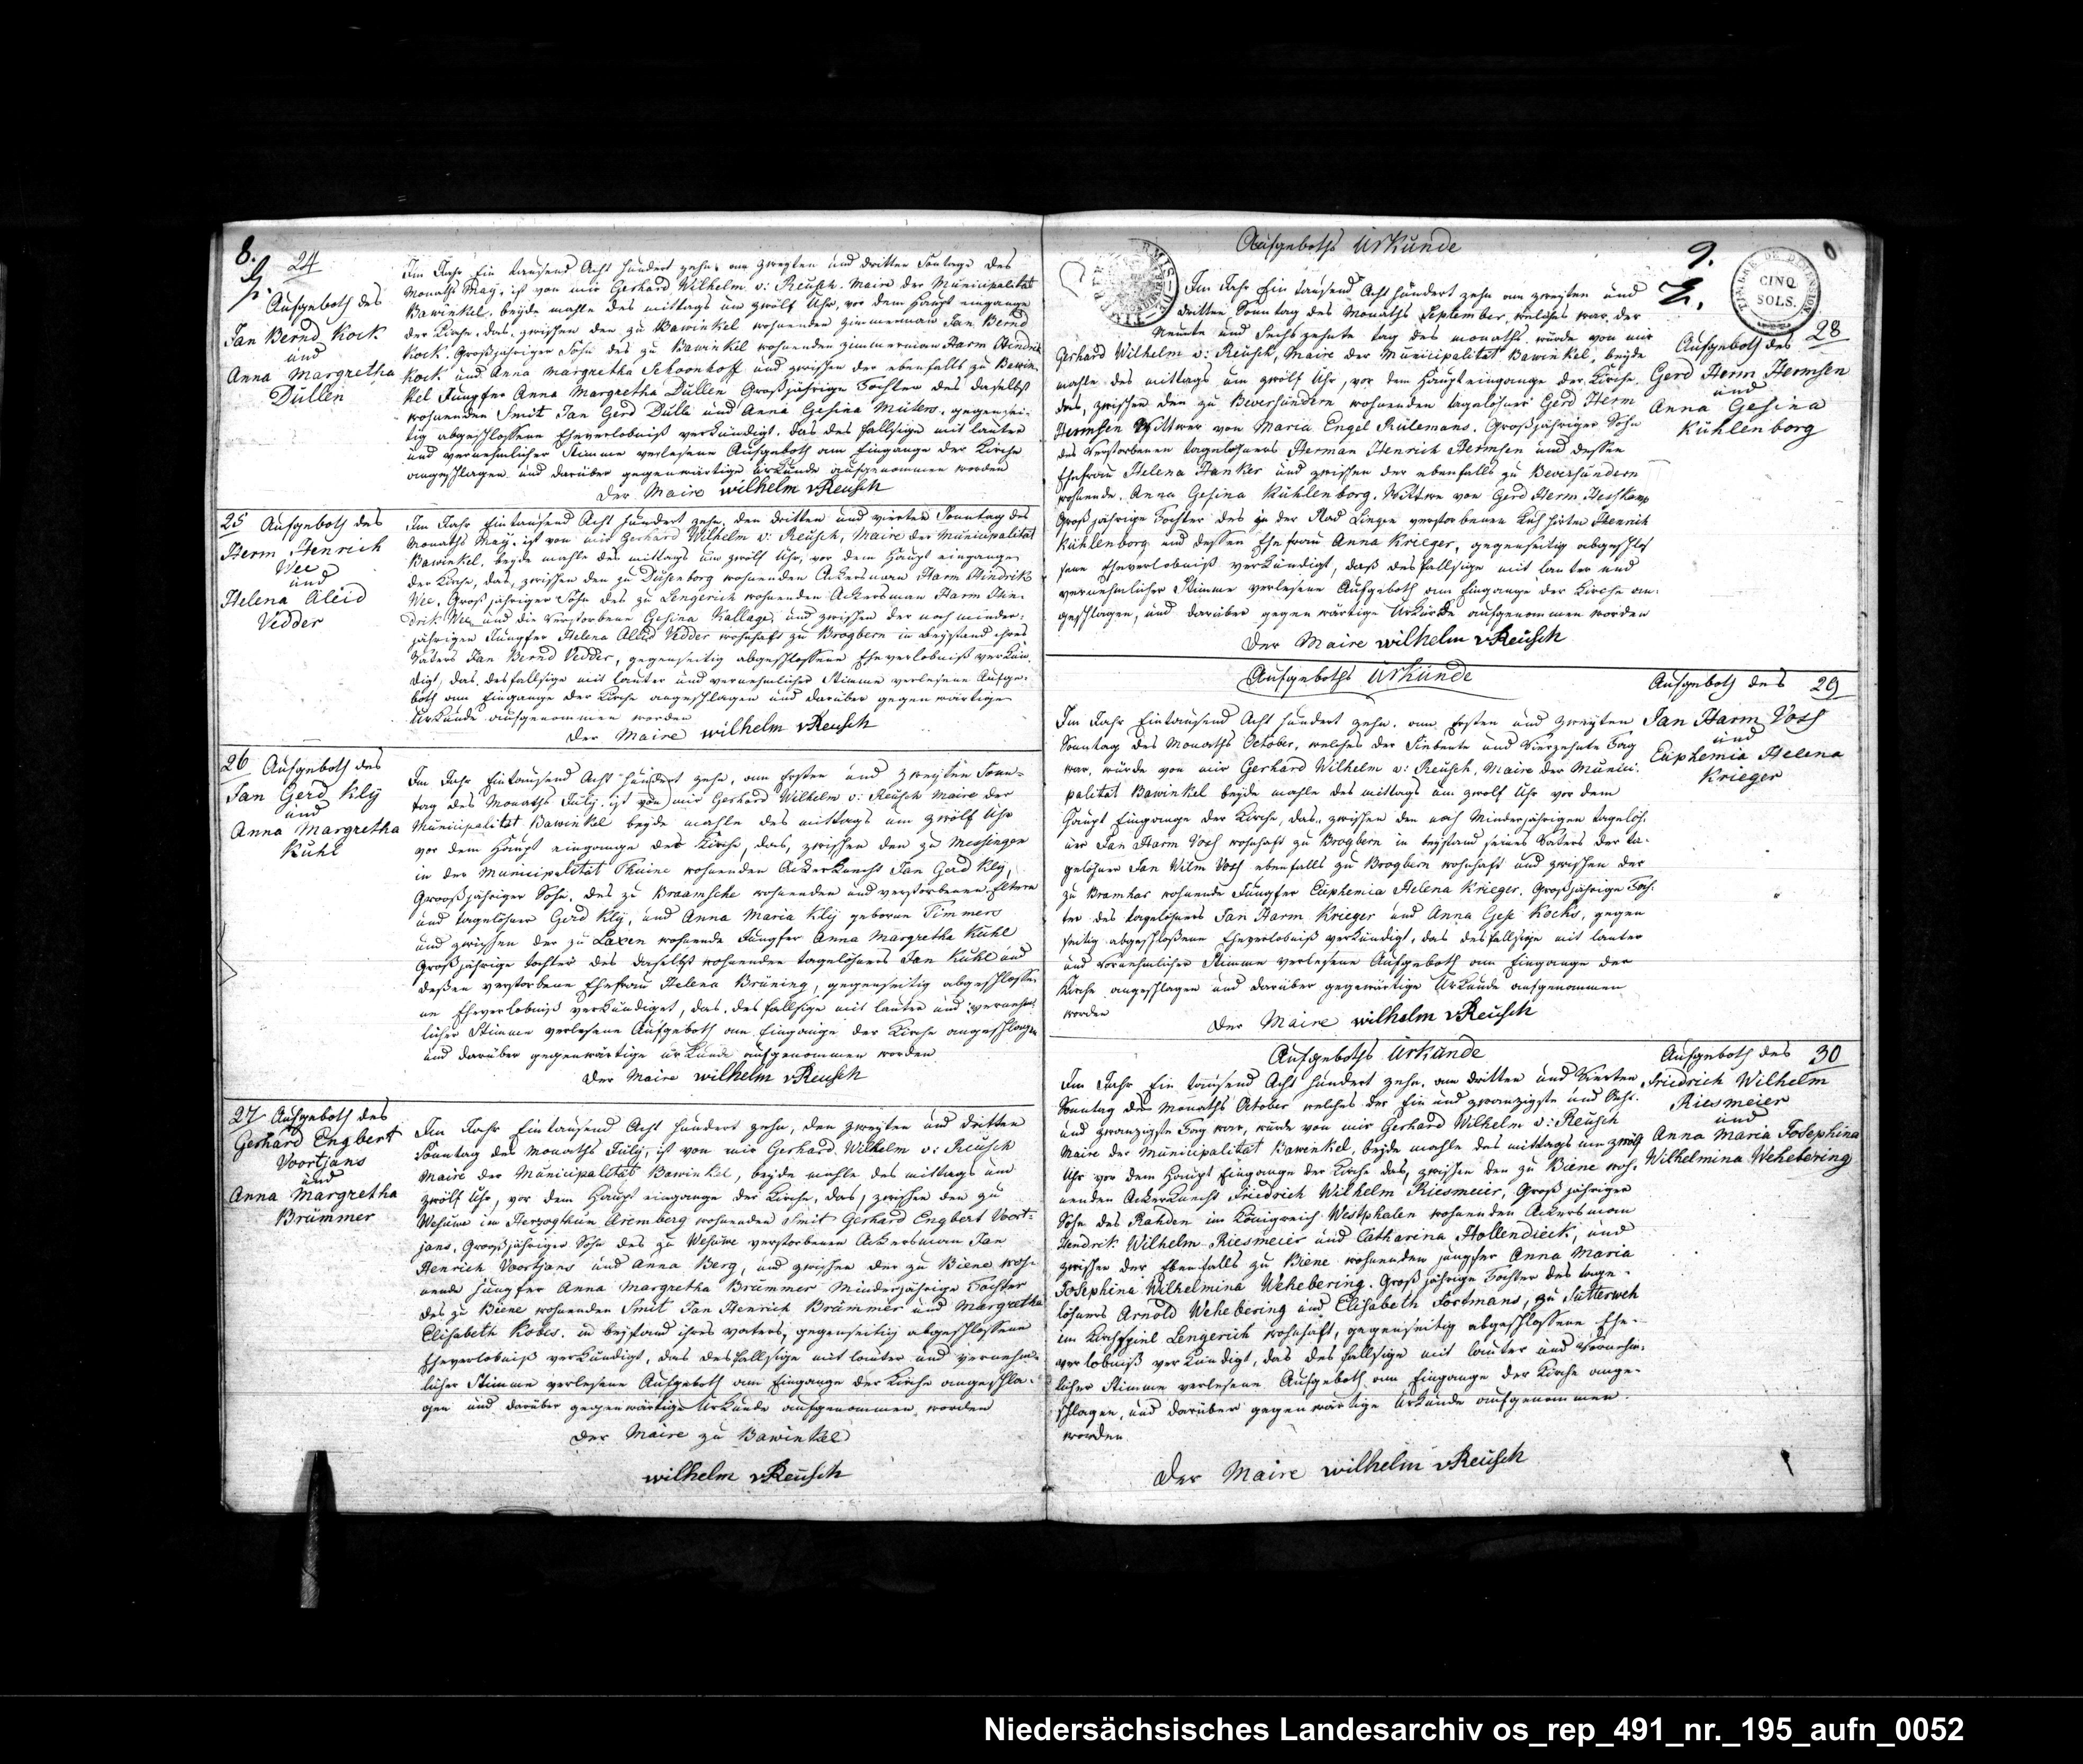 8.
24
Aufgeboth des
Jan Bernd Kock
und
Anna Margretha
Düllen
Im Jahr Ein tausend Acht hundert zehn, am zweyten und dritten Sontage des
Monaths May, ist von mir Gerhard Wilhelm v: Reusch, Maire der Municipalität
Bawinkel, beyde mahle des mittags um zwölf Uhr, vor dem Haupt eingange
der Kirche, das, zwischen den zu Bawinkel wohnenden Zimmerman Jan Bernd
Kock, Großjähriger Sohn des zu Bawinkel wohnenden Zimmerman Harm Hindrik
Kock und Anna Margretha Schoonhoff und zwischen der ebenfalls zu Bawin-
kel Jungfer Anna Margretha Düllen Großjährige Tochter des daselbst
wohnenden Smit Jan Gerd Dülle und Anna Gesina Müters, gegensei-
tig abgeschlossene Eheverlobniß verkündigt, das des fallsige mit lauter
und vernehmlicher Stimme verlesene Aufgeboth am Eingange der Kirche
angeschlagen und darüber gegenwärtige Urkunde aufgenommen worden
Der Maire wilhelm vReusch
25 Aufgeboth des
Herm Henrich
Wee
und
Helena Aleid
Vedder
Im Jahr Eintausend Acht hundert zehn, den dritten und vierten Sonntag des
Monaths May, ist von mir Gerhard Wilhelm v: Reusch, Maire der Municipalität
Bawinkel, beyde mahle des mittags um zwölf Uhr, vor dem Haupt eingange
der Kirche, das, zwischen den zu Duhenborg wohnenden Ackersman Harm Hindrik
Wee, Großjähriger Sohn des zu Lengerich wohnenden Ackersman Harm Hin-
drik Wee und die verstorbene Gesina Kallage, und zwischen der noch minder-
jährigen Jungfer Helena Aleid Vedder wohnhaft zu Brogbern in Beystand ihres
Vaters Jan Bernd Vedder, gegenseitig abgeschlossene Eheverlobniß verkün-
digt, das desfallsige mit lauter und vernehmlicher Stimme verlesene Aufge-
both am Eingange der Kirche angeschlagen und darüber gegenwärtige
Urkunde aufgenommen worden
Der Maire wilhelm vReusch
26 Aufgeboth des
Jan Gerd Klÿ
und
Anna Margretha
Kuhl
Im Jahr Eintausend Acht hundert zehn, am Ersten und zweyten Sonn-
tag des Monaths July, ist von mir Gerhard Wilhelm v: Reusch Maire der
Municipalität Bawinkel beyde mahle des mittags um zwölf Uhr
vor dem Haupt eingange der Kirche, das, zwischen den zu Messingen
in der Municipalität Thuine wohnenden Ackerknecht Jan Gerd Klÿ,
Großjähriger Sohn, des zu Braamsche wohnenden und verstorbenen Eltern
und tagelöhner Gerd Klÿ, und Anna Maria Klÿ geborne Timmers
und zwischen der zu Laxen wohnende Jungfer Anna Margretha Kuhl
Großjährige tochter des daselbst wohnenden tagelöhners Jan Kuhl und
deßen verstorbene Ehefrau Helena Brüning, gegenseitig abgeschlosse-
ne Eheverlobniß verkündiget, das, des fallsige mit lauter und vernehm-
licher Stimme verlesene Aufgeboth am Eingange der Kirche angeschlagen
und darüber gegenwärtige Urkunde aufgenommen worden
Der Maire wilhelm vReusch
27 Aufgeboth des
Gerhard Engbert
Voortjans
und
Anna Margretha
Brümmer
Im Jahr Eintausend Acht hundert zehn, den zweyten und dritten
Sonntag des Monaths July, ist von mir Gerhard Wilhelm v: Reusch
Maire der Municipalität Bawinkel, beyde mahle des mittags um
zwölf Uhr, vor dem Haupt eingange der Kirche, das, zwischen den zu
Wesuwe im Herzogthum Aremberg wohnenden Smit Gerhard Engbert Voort-
jans, Großjähriger Sohn des zu Wesuwe verstorbenen Ackersman Jan
Henrich Voortjans und Anna Berg, und zwischen der zu Biene woh-
nende Jungfer Anna Margretha Brümmer Minderjährige Tochter
des zu Biene wohnenden Smit Jan Henrich Brümmer und Margretha
Elisabeth Kobes, in beystand ihres vaters, gegenseitig abgeschlossene
Eheverlobniß verkündigt, das desfallsige mit lauter und vernehm-
licher Stimme verlesene Aufgeboth am Eingange der Kirche angeschla-
gen und darüber gegenwärtige Urkunde aufgenommen worden
Der Maire zu Bawinkel
wilhelm vReusch
Aufgeboths Urkunde
9.
TIMBRE DE DIMENSION.
CINQ
SOLS.
28
Aufgeboth des
Gerd Herm Hermsen
und
Anna Gesina
Kühlenborg
Im Jahr Ein tausend Acht hundert zehn am zweyten und
dritten Sonntag des Monaths September, welches war der
Neunte und Sechszehnte tag des monaths, wurde von mir
Gerhard Wilhelm v: Reusch, Maire der Municipalität Bawinkel, beyde
mahle des mittags um zwölf Uhr, vor dem Haupteingange der Kirche
das, zwischen den zu Beversundern wohnenden tagelöhner Gerd Herm
Hermsen Wittwer von Maria Engel Rülemans, Großjähriger Sohn
des verstorbenen tagelöhners Herman Henrich Hermsen und dessen
Ehefrau Helena Hanker und zwischen der ebenfalls zu Beversundern
wohnende Anna Gesina Kühlenborg, Wittwe von Gerd Herm Heskamp
Großjährige Tochter des in der Stad Lingen verstorbenen Kuhhirten Henrich
Kühlenborg und dessen Ehefrau Anna Krieger, gegenseitig abgeschlos
sene Eheverlobniß verkündigt, daß desfallsige mit lauter und
vernehmlicher Stimme verlesene Aufgeboth am Eingange der Kirche an-
geschlagen, und darüber gegenwärtige Urkunde aufgenommen worden
Der Maire wilhelm vReusch
Aufgeboths Urkunde
Aufgeboth des 29
Jan Harm Vosh
und
Euphemia Helena
Krieger
Im Jahr Eintausend Acht hundert zehn, am Ersten und zweyten
Sonntag des Monaths October, welches der Siebente und Vierzehnte Tag
war, wurde von mir Gerhard Wilhelm v: Reusch, Maire der Munici-
palität Bawinkel beyde mahle des mittags um zwölf Uhr vor dem
Haupt Eingange der Kirche, das, zwischen den noch Minderjährigen tagelöh-
ner Jan Harm Vosh wohnhaft zu Brogbern in beystand seines Vaters der ta-
gelöhner Jan Wilm Vosh ebenfalls zu Brogbern wohnhaft und zwischen der
zu Bramhar wohnende Jungfer Euphemia Helena Krieger, Großjährige Toch-
ter des tagelöhners Jan Harm Krieger und Anna Gese Kocks, gegen
seitig abgeschloßene Eheverlobniß verkündigt, das desfallsige mit lauter
und vernehmlicher Stimme verlesene Aufgeboth am Eingange der
Kirche angeschlagen und darüber gegewärtige Urkunde aufgenommen
worden
Der Maire wilhelm vReusch
Aufgeboths Urkunde
Aufgeboth des 30
Friedrich Wilhelm
Riesmeier
und
Anna Maria Josephina
Wilhelmina Wehebering
Im Jahr Ein tausend Acht hundert zehn, am dritten und Vierten
Sonntag des Monaths October welches der Ein und zwanzigste und Acht-
und zwanzigste Tag war, wurde von mir Gerhard Wilhelm v: Reusch
Maire der Municipalität Bawinkel, beyde mahle des mittags um zwölf
Uhr vor dem Haupt Eingange der Kirche das, zwischen den zu Biene woh-
nenden Ackerknecht Friedrich Wilhelm Riesmeier, Großjähriger
Sohn des Rahden im Königreich Westphalen wohnenden Ackersman
Hendrik Wilhelm Riesmeier und Catharina Hollendieck, und
zwischen der Ebenfalls zu Biene wohnenden jungfer Anna Maria
Josephina Wilhelmina Wehebering, Großjährige Tochter des tage-
löhners Arnold Wehebering und Elisabeth Fortmans, zu Sutterweh
im Kirchspiel Lengerich wohnhaft, gegenseitig abgeschlossene Ehe-
verlobniß verkündigt, das desfallsige mit lauter und vernehm-
licher Stimme verlesene Aufgeboth am Eingange der Kirche ange-
schlagen, und darüber gegenwärtige Urkunde aufgenommen
worden
Der Maire wilhelm vReusch
Niedersächsisches Landesarchiv os_rep_491_nr._195_aufn_0052